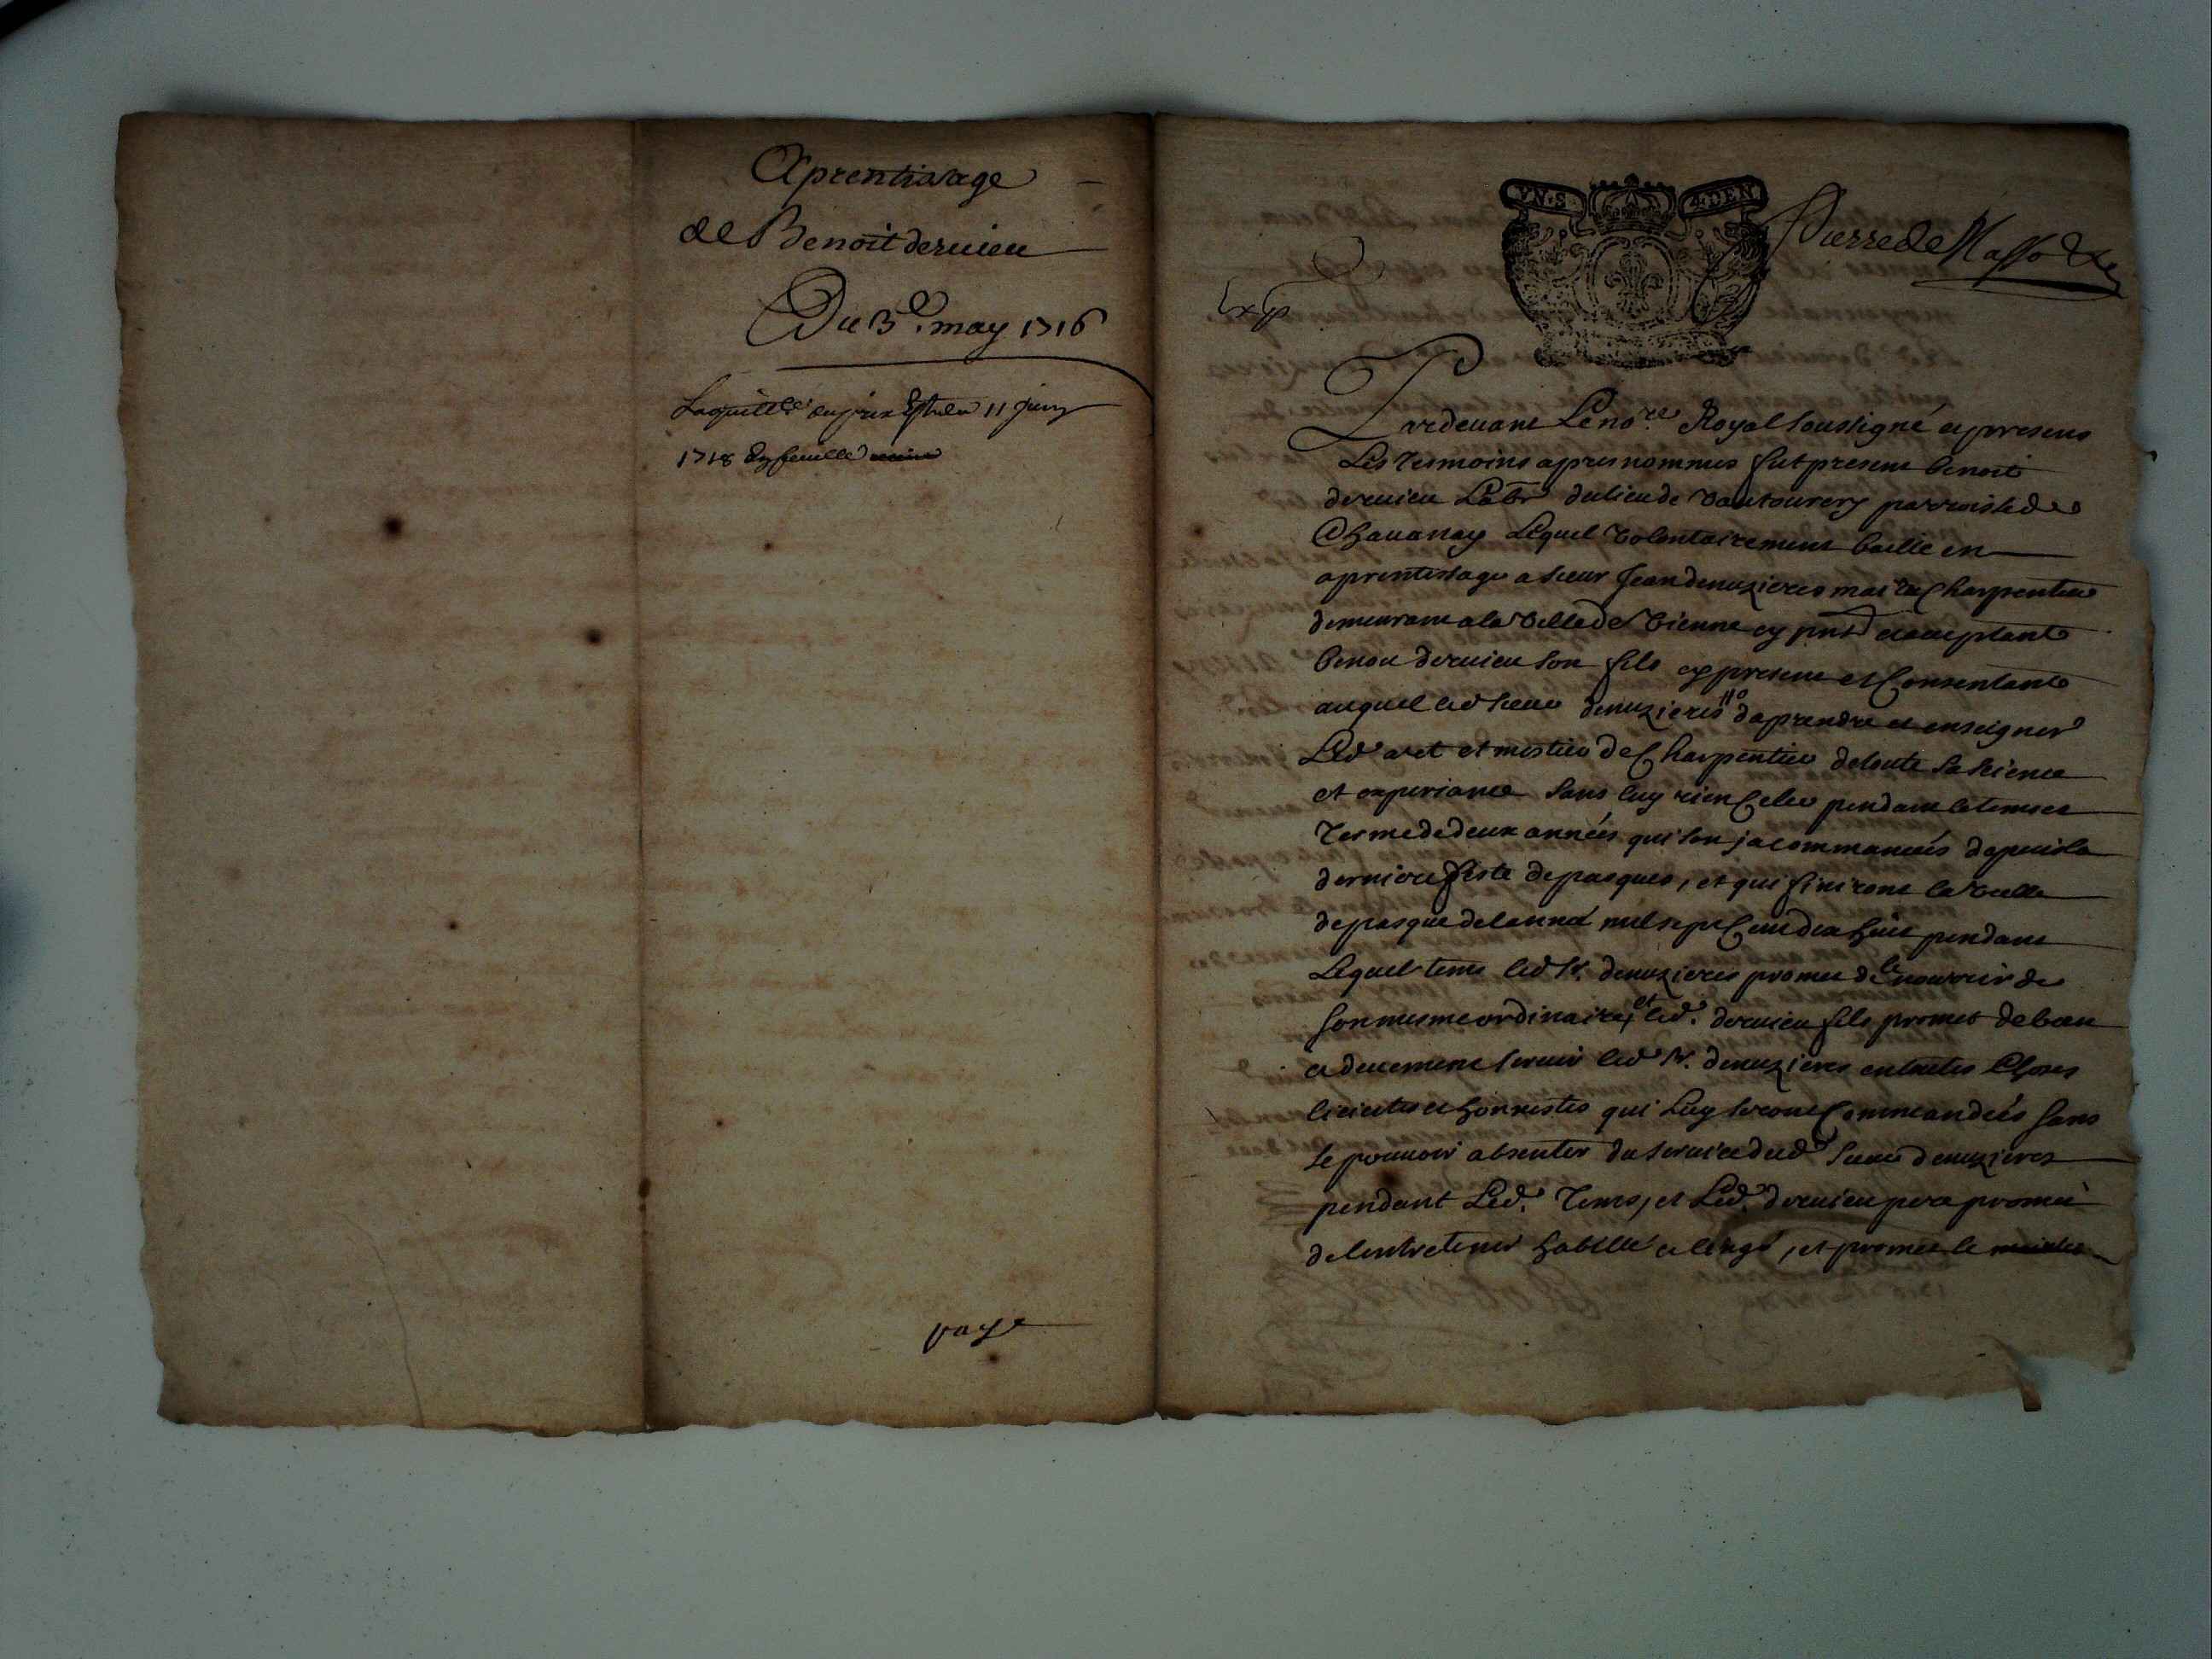 Aprentissage
de Benoit deruieu
Du 3e. may 1716
Laquittce du prix Est du 11 juin
1718 En feuille
paye
YN.S. 4.DEN.
Pierre de
Exp
Pardeuant Le nore. Royal soussigné et presens
Les tesmoins apres nommes fut present benoit
deruieu Labr du lieu de parroisse de
Chauanay Lequel volontairement baille en
aprentissage a sieur Jean denuzieres maitre Charpentier
demeurant a la ville de vienne cy pnt et acceptant
benoit deruieu son fils cy present et Consentant
auquel led sieur denuzieres daprendre et enseigner
Led art et mestier de Charpentier de toute sa science
et experiance sans luy rien Celer pendant le temps et
terme de deux années qui son ja commancées depuis la
derniere feste de pasques, et qui finiront la veille
de pasque de lanné mil sept Cent dix huit pendant
Lequel tems led sr. denuzieres promet de le nourrir de
son mesme ordinaire, et led. deruieu fils promet de bien
et deuement seruir led sr. denuzieres en toutes Choses
licites et honnestes qui Luy seront Commandées sans
se pouuoir absenter du seruice dud sieur denuzieres
pendant Led. tems, et Led. deruieu pere promet
de lentretenir habillé et linge, et promet le